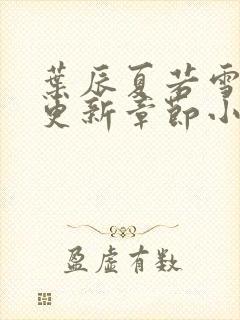 葉辰夏若雪
更新章節小
盈虛有数